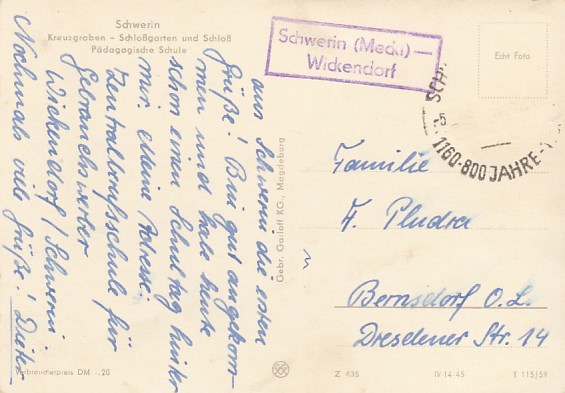 Schwerin
Kreuzgraben – Schloßgarten und Schloß
Pädagogische Schule
Schwerin (Meckl) —
Wickendorf
Echt Foto
SCH
-5.
1160-800 JAHRE-
aus Schwerin die ersten
Grüße! Bin gut angekom-
men und habe heute
schon einen Schultag hinter
mir. Meine Adresse:
Zentralberufsschule für
Gebrauchswerber
Wickendorf / Schwerin.
Nochmals viele Grüße! Dieter
Gebr. Garloff KG., Magdeburg
Familie
F. Pludra
Bernsdorf O.L.
Dresdener Str. 14
Verbraucherpreis DM -,20
Z 435
IV-14-45
T 115/59